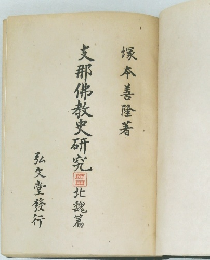 塚本善隆著
支那佛敎史硏究 北魏篇
弘文堂發行